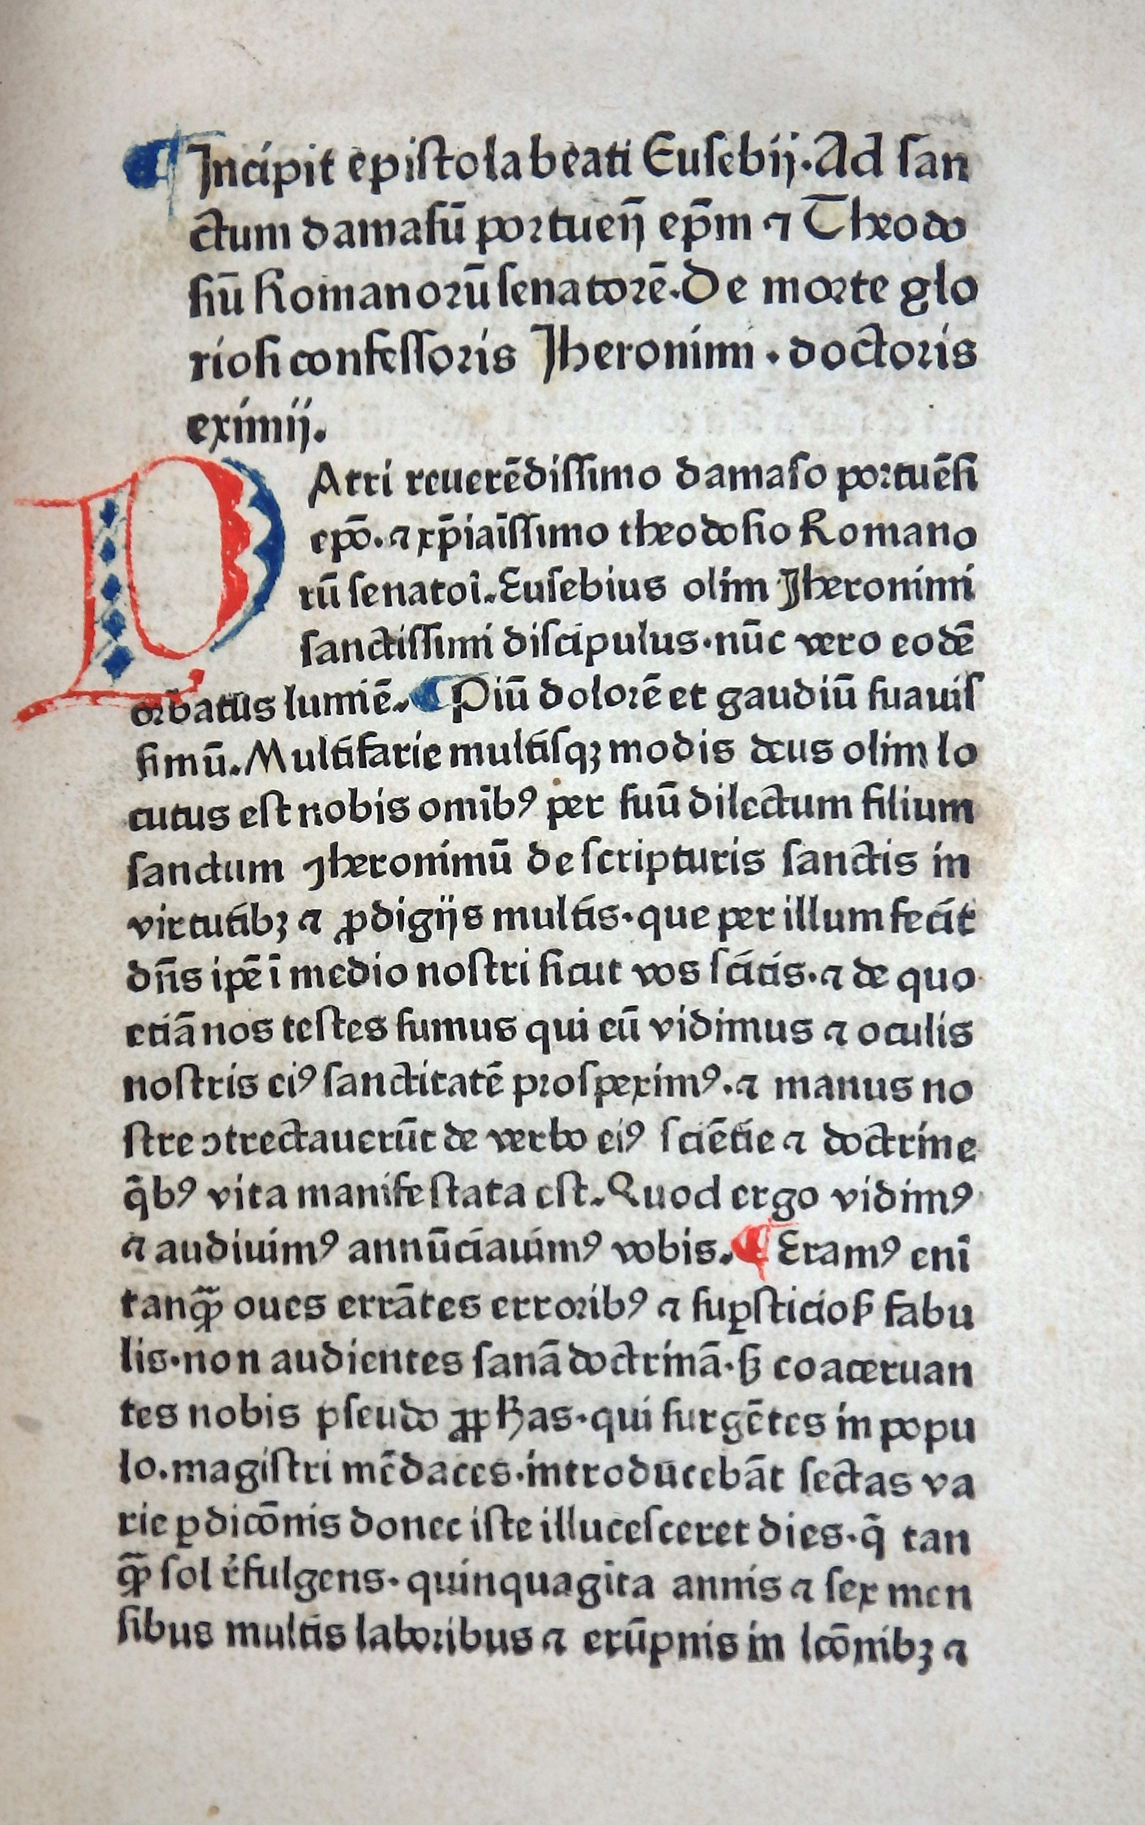 ¶ Incipit epistola beati Eusebij. Ad san
ctum damasū portueñ ep̄m ⁊ Theodo
siū Romanorū senatorē. De morte glo
riosi confessoris Jheronimi . doctoris
eximij.
PAtri reuerēdissimo damaso portuēsi
epō. ⁊ xp̄iaīssimo theodosio Romano
rū senatoī. Eusebius olim Jheronimi
sanctissimi discipulus. nūc vero eodē
orbatus lumīe. ¶ Piū dolorē et gaudiū suauis
simū. Multifarie multisqꝫ modis deus olim lo
cutus est nobis omībꝰ per suū dilectum filium
sanctum Jheronimū de scripturis sanctis in
virtutibꝫ ⁊ ꝓdigijs multis. que per illum fecit
dn̄s ip̄e ī medio nostri sicut vos scitis. ⁊ de quo
etiā nos testes sumus qui eū vidimus ⁊ oculis
nostris eiꝰ sanctitatē prospeximꝰ. ⁊ manus no
stre ꝯtrectauerūt de verbo eiꝰ sciētie ⁊ doctrine
q̄bꝰ vita manifestata est. Quod ergo vidimꝰ
⁊ audiuimꝰ annūciauimꝰ vobis. ¶ Eramꝰ enī
tanqꝫ̄ oues errātes erroribꝰ ⁊ suꝑsticiosꝭ fabu
lis. non audientes sanā doctrinā. sꝫ coaceruan
tes nobis pseudo ꝓpħas. qui surgētes in popu
lo. magistri mēdaces. introducebāt sectas va
rie ꝑdicōnis donec iste illucesceret dies. q̄ tan
qꝫ̄ sol r̄fulgens. quinquagīta annis ⁊ sex men
sibus multis laboribus ⁊ erūpnis in lcōnibꝫ ⁊